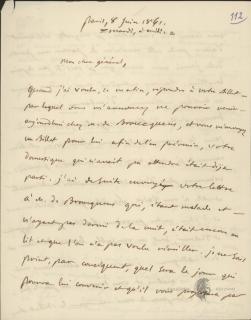 112
Paris, 8 Juin 1841.
mardi, à midi
Mon cher général,
Quand j'ai voulu, ce matin, répondre à votre billet
par lequel vous m'annoncez ne pouvoir venir
aujourd'hui chez M. de Bourcqueney, et vous m'envoyez
un billet pour lui afin de l'en prévenir, votre
domestique qui n'avait pu attendre était déjà
parti. j'ai de suite envoyé votre lettre
à M. de qui, étant malade et
n'ayant pas dormi de la nuit, était encore au
lit et que l'on n'a pas voulu réveiller. je ne sais
point, par conséquent, quel sera le jour qui
pourra lui convenir et qu'il vous par